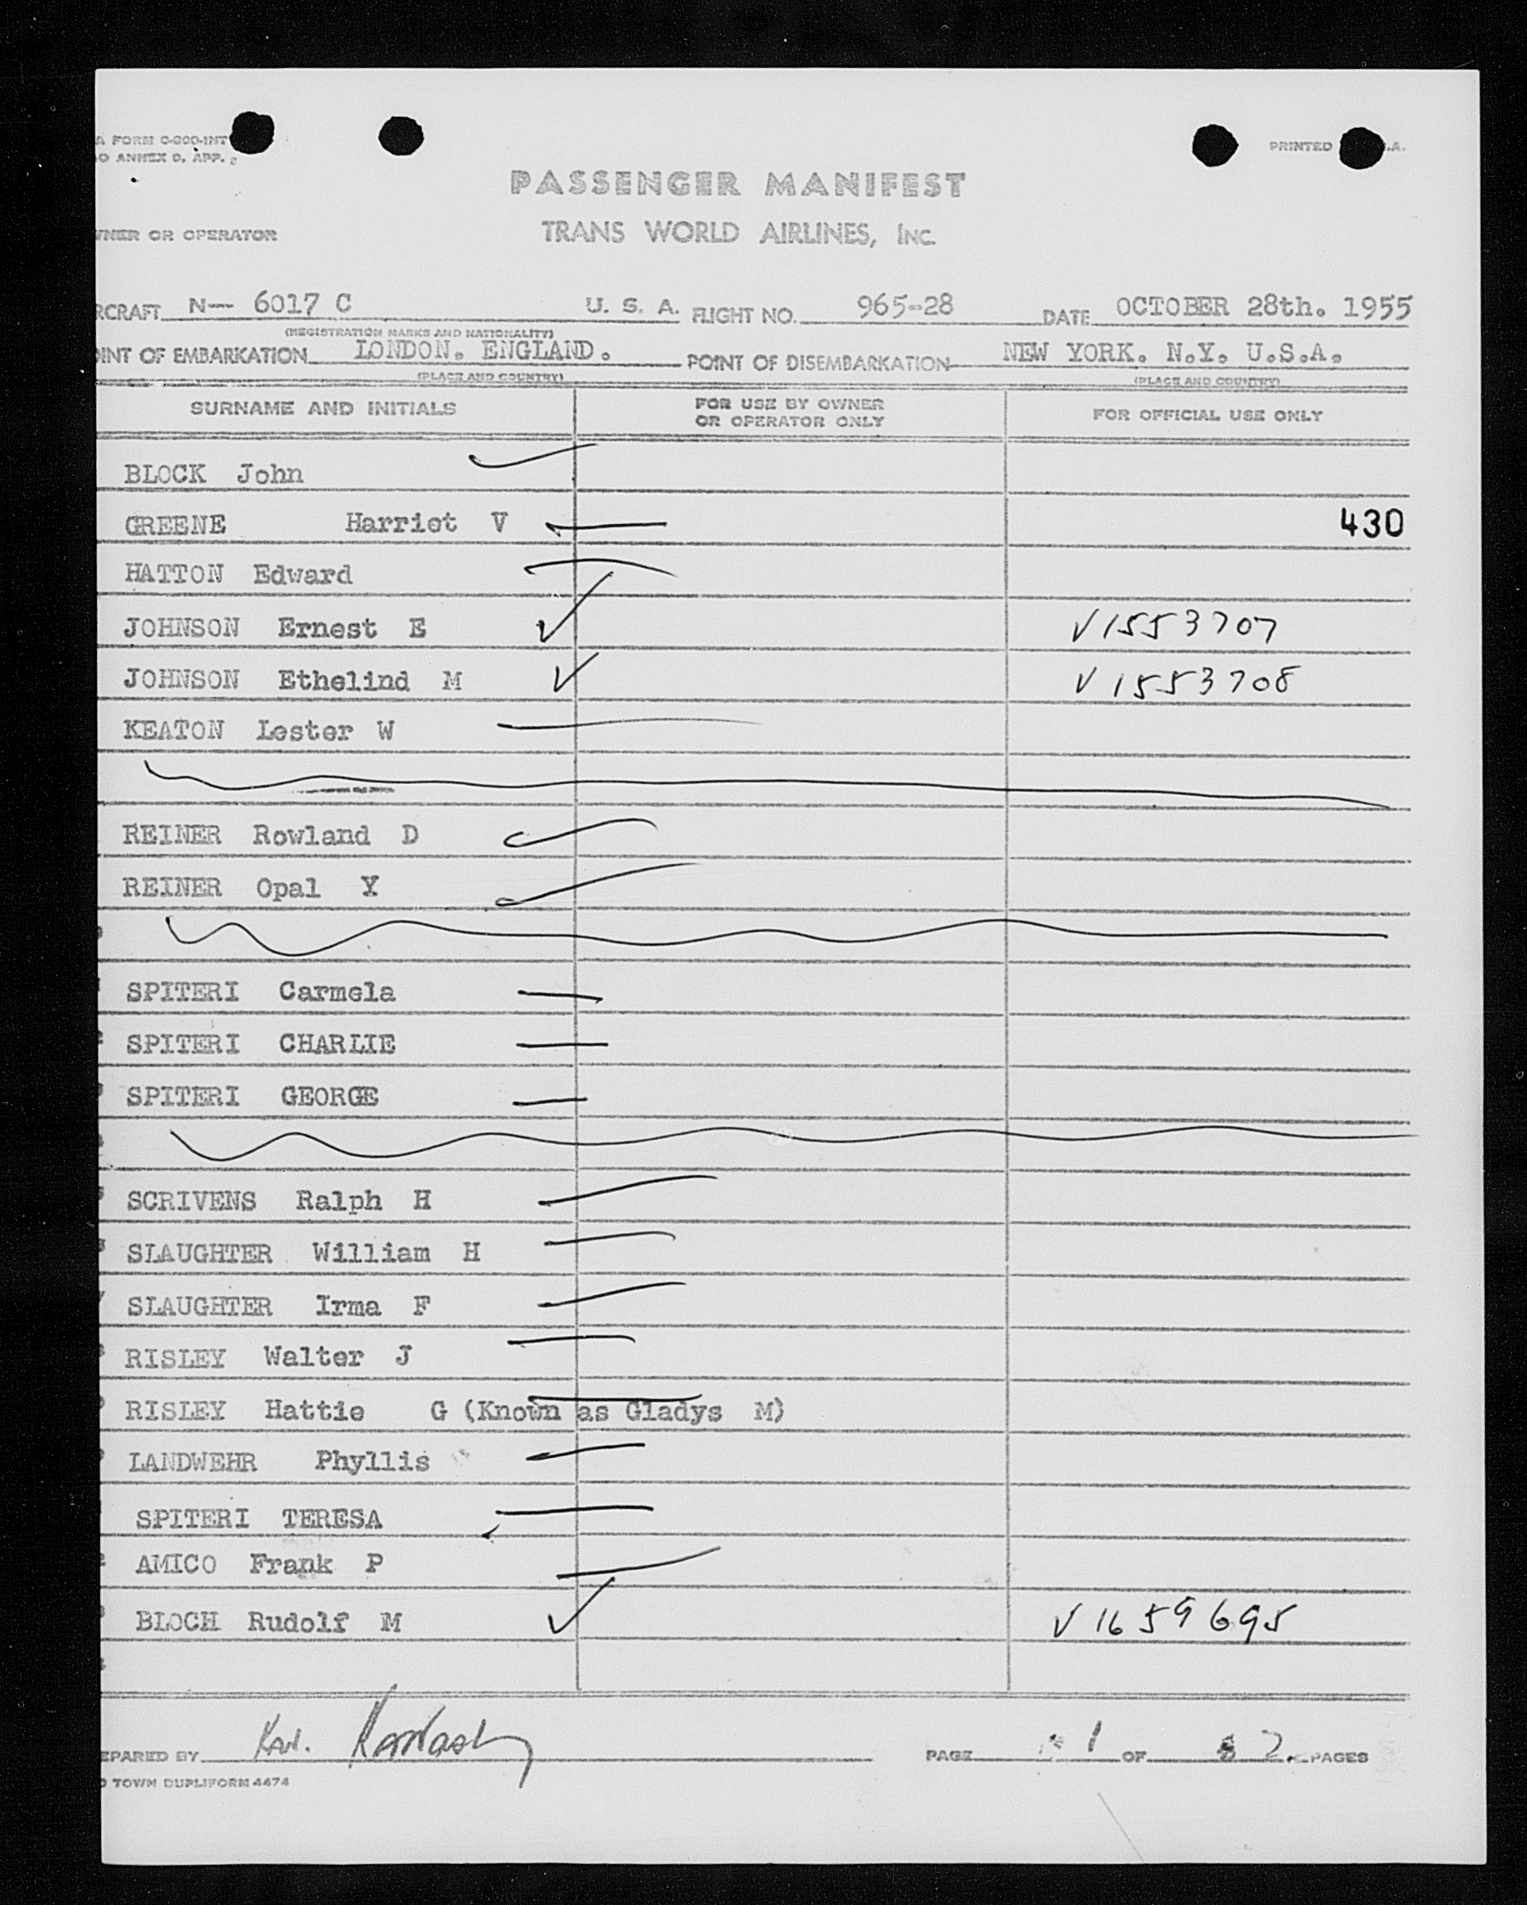 A FORM O-800-INT PRINTED .A.
O ANNEX 9, APP.
PASSENGER MANIFEST
WNER OR OPERATOR TRANS WORLD AIRLINES, INC.
RCRAFT N-- 6017 C U. S. A. FLIGHT NO. 965-28 DATE OCTOBER 28th. 1955
(REGISTRATION MARKS AND NATIONALITY)
OINT OF EMBARKATION LONDON. ENGLAND. POINT OF DISEMBARKATION NEW YORK. N.Y. U.S.A.
(PLACE AND COUNTRY) (PLACE AND COUNTRY)
SURNAME AND INITIALS FOR USE BY OWNER OR OPERATOR ONLY FOR OFFICIAL USE ONLY
BLOCK John
GREENE Harriet V 430
HATTON Edward
JOHNSON Ernest E V1553707
JOHNSON Ethelind M V1553708
KEATON Lester W
REINER Rowland D
REINER Opal Y
SPITERI Carmela
SPITERI CHARLIE
SPITERI GEORGE
SCRIVENS Ralph H
SLAUGHTER William H
SLAUGHTER Irma F
RISLEY Walter J
RISLEY Hattie G (Known as Gladys M)
LANDWEHR Phyllis
SPITERI TERESA
AMICO Frank P
BLOCH Rudolf M V1659695
EPARED BY PAGE 1 OF 2. PAGES
TOWN DUPLIFORM 4474